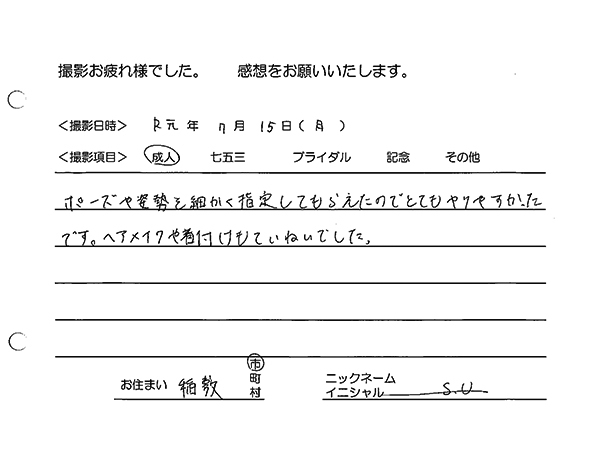 撮影お疲れ様でした。　感想をお願いいたします。
＜撮影日時＞ R元年 7月 15日(月)
＜撮影項目＞ 成人 七五三 ブライダル 記念 その他
ポーズや姿勢を細かく指定してもらえたのでとてもやりやすかった
です。ヘアメイクや着付けもていねいでした。
お住まい 稲敷 市町村
ニックネーム イニシャル S.U